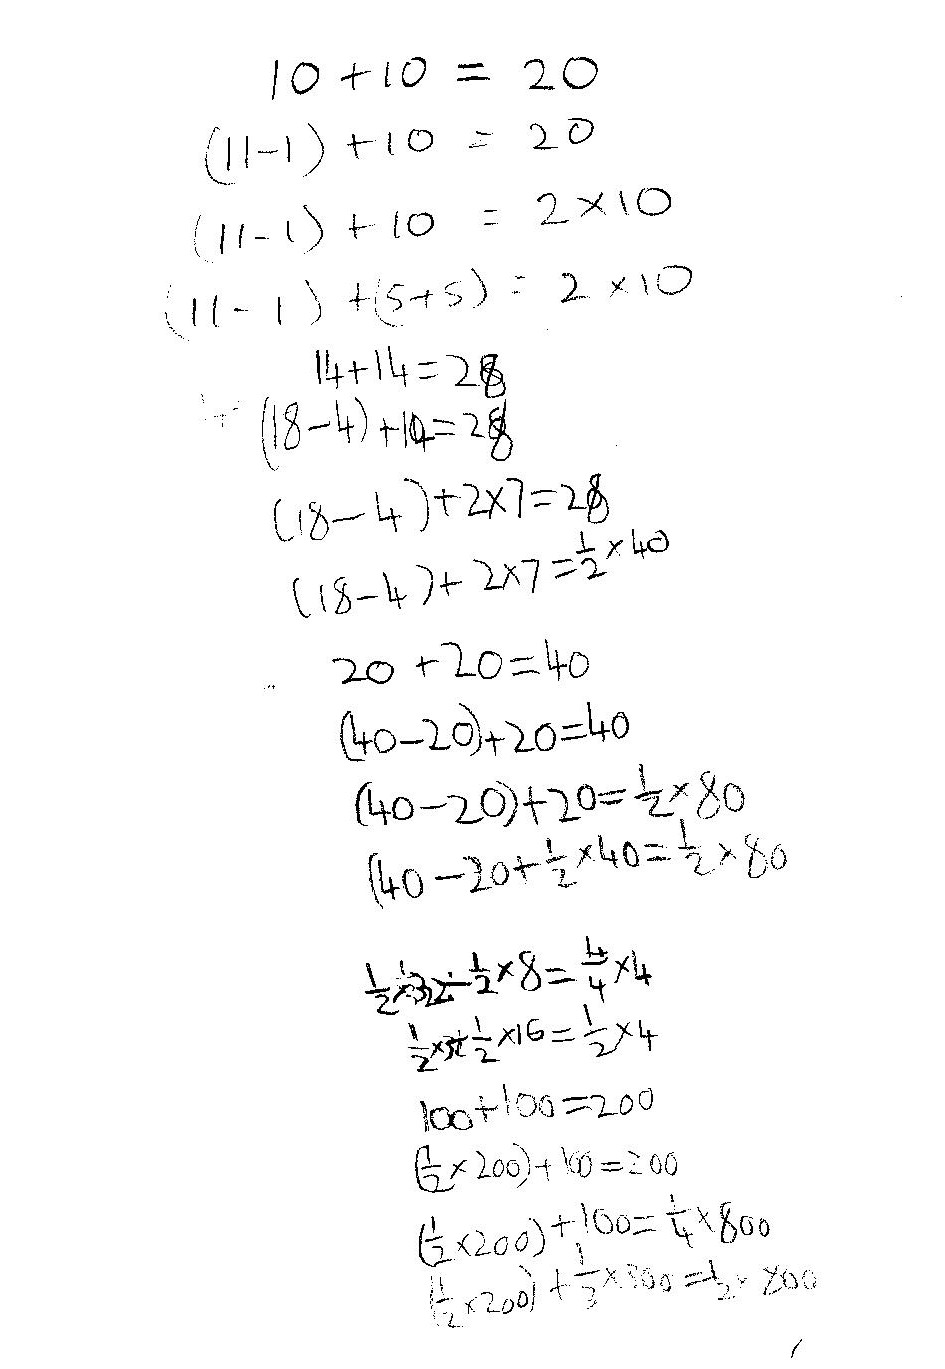 10 + 10 = 20
(11-1) + 10 = 20
(11-1) + 10 = 2 × 10
(11-1) + (5+5) = 2 × 10
14 + 14 = 28
(18-4) + 14 = 28
(18-4) + 2×7 = 28
(18-4) + 2×7 = 1/2 × 40
20 + 20 = 40
(40-20) + 20 = 40
(40-20) + 20 = 1/2 × 80
(40-20 + 1/2 × 40 = 1/2 × 80
1/2 × 32 ÷ 1/2 × 8 = 4/4 × 4
1/2 × 1/2 × 16 = 1/2 × 4
100 + 100 = 200
(1/2 × 200) + 100 = 200
(1/2 × 200) + 100 = 1/4 × 800
(1/2 × 200) + 1/3 × 300 = 1/2 × 800